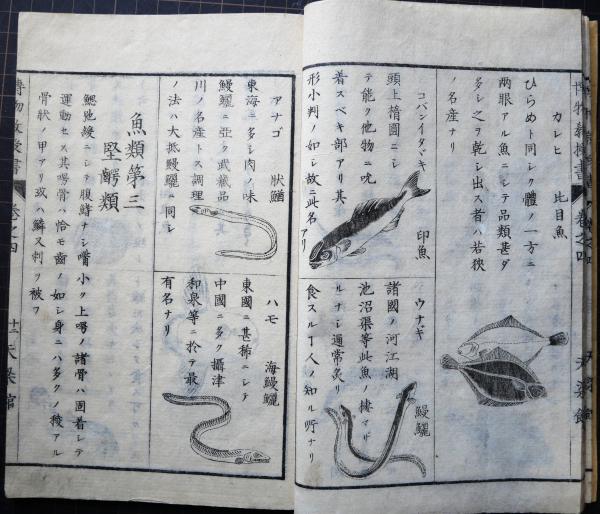 カレヒ 比目魚
ひらめト同シク體ノ一方ニ
両眼アル魚ニシテ品類甚ダ
多シ之ヲ乾シ出ス者ハ若狹
ノ名産ナリ
コバンイタヾキ 印魚
頭上楕圓ニシ
テ能ク他物ニ吮
着スベキ部アリ其
形小判ノ如シ故ニ此名
アリ
ウナギ 鰻鱺
諸國ノ河江湖
池沼渠等此魚ノ棲マザ
ルナシ通常炙リ
食スルヿ人ノ知ル所ナリ
アナゴ 狀鰌
東海ニ多シ肉ノ味
鰻鱺ニ亞ク武藏品
川ノ名産トス調理
ノ法ハ大抵鰻鱺ニ同シ
ハモ 海鰻鱺
東國ニ甚稀ニシテ
中國ニ多ク攝津
和泉等ニ於テ最
有名ナリ
魚類第三
堅腭類
鰓弛緩ニシテ腹鰭ナシ嘴小ク上腭ノ諸骨ハ固着シテ
運動セス其腭骨ハ恰モ齒ノ如シ身ニハ多クノ稜アル
骨狀ノ甲アリ或ハ鱗ス刺ヲ被フ
博物教授書 卷之四